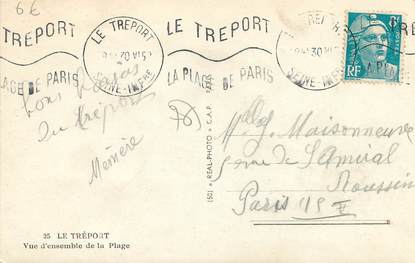 6€
LE TRÉPORT
LE TREPORT
LE TRÉPORT
PLAGE DE PARIS
SEINE-INFRE
LA PLAGE DE PARIS
RF
Bons
du tréport
Mémère
(50) « REAL-PHOTO » C.A.P. PARIS
Maisonneuve
rue de l'Amiral
Roussin
Paris 15 E
25 LE TRÉPORT
Vue d'ensemble de la Plage